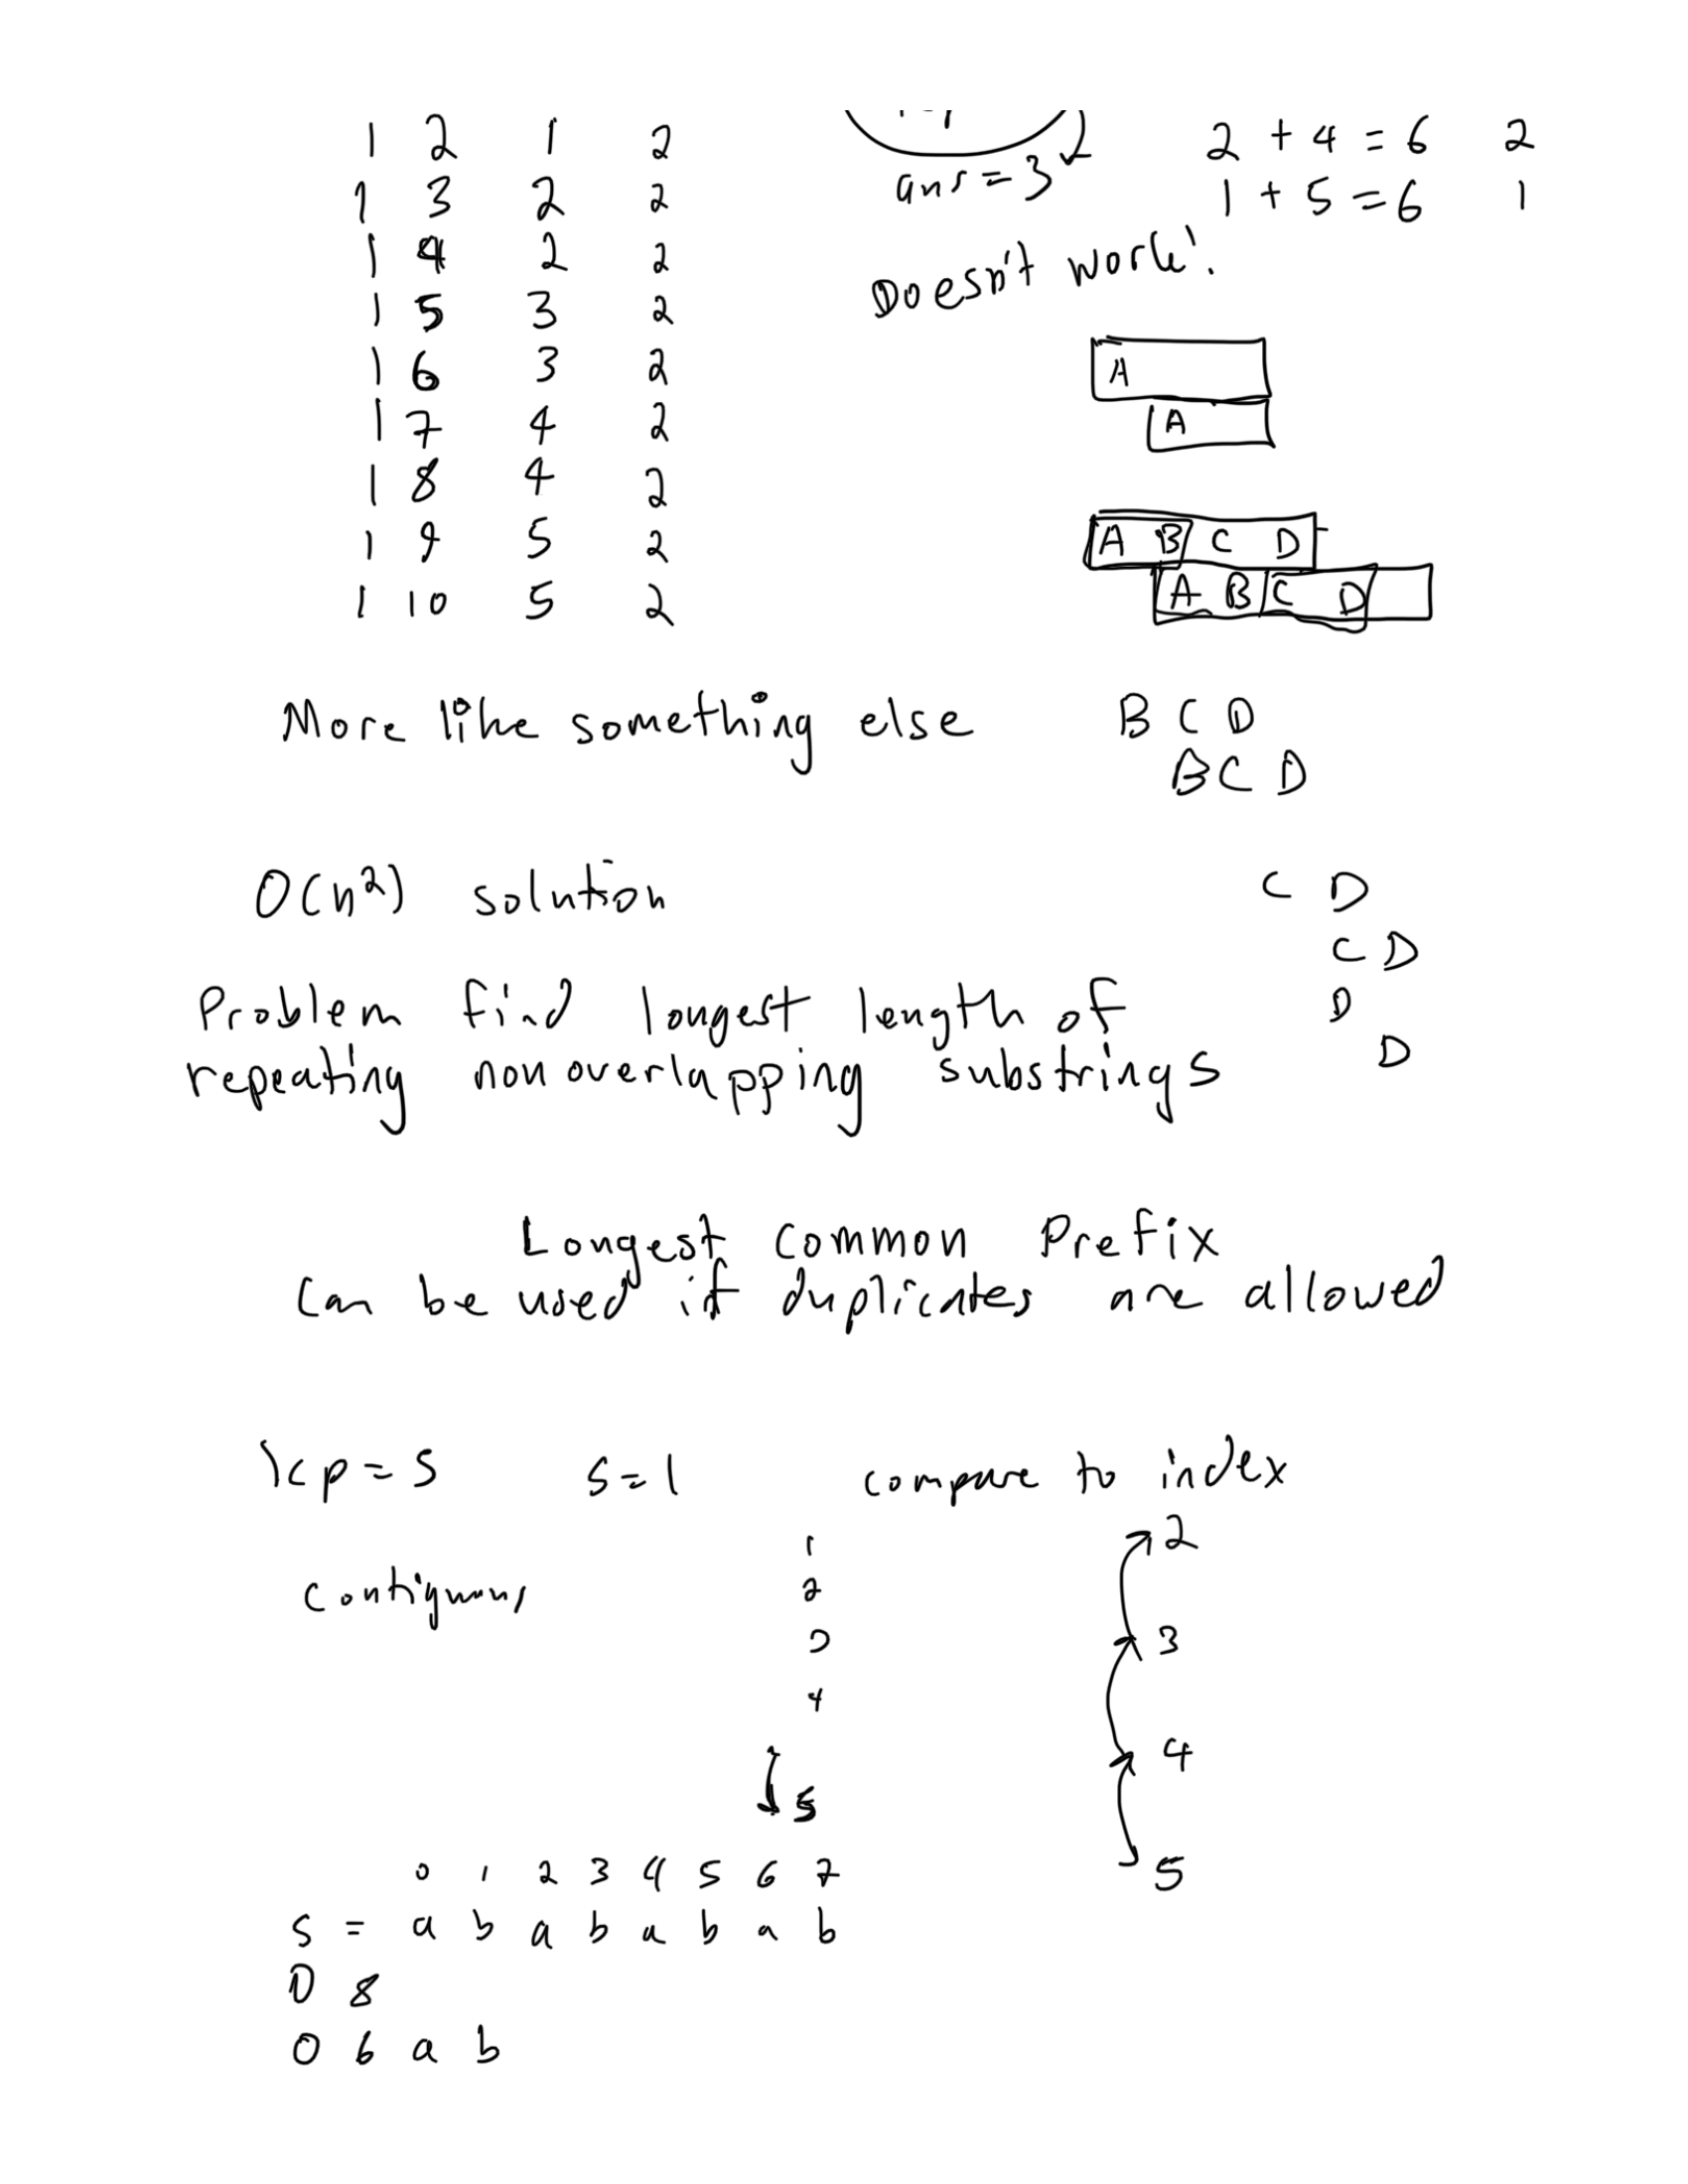 1 2 1 2
1 3 2 2
1 4 2 2
1 5 3 2
1 6 3 2
1 7 4 2
1 8 4 2
1 9 5 2
1 10 5 2
ans = 3
2 + 4 = 6 2
1 + 5 = 6 1
Doesn't work!
A
A
A B C D
A B C D
More like something else
B C D
B C D
O(n²) solution
C D
C D
D
D
Problem find longest length of
repeating nonoverlapping substrings
Longest common Prefix
Can be used if duplicates are allowed
lcp = s s=1 compare to index
contiguous
1
2
3
4
5
2
3
4
5
0 1 2 3 4 5 6 7
s = a b a b a b a b
0 8
0 6 a b